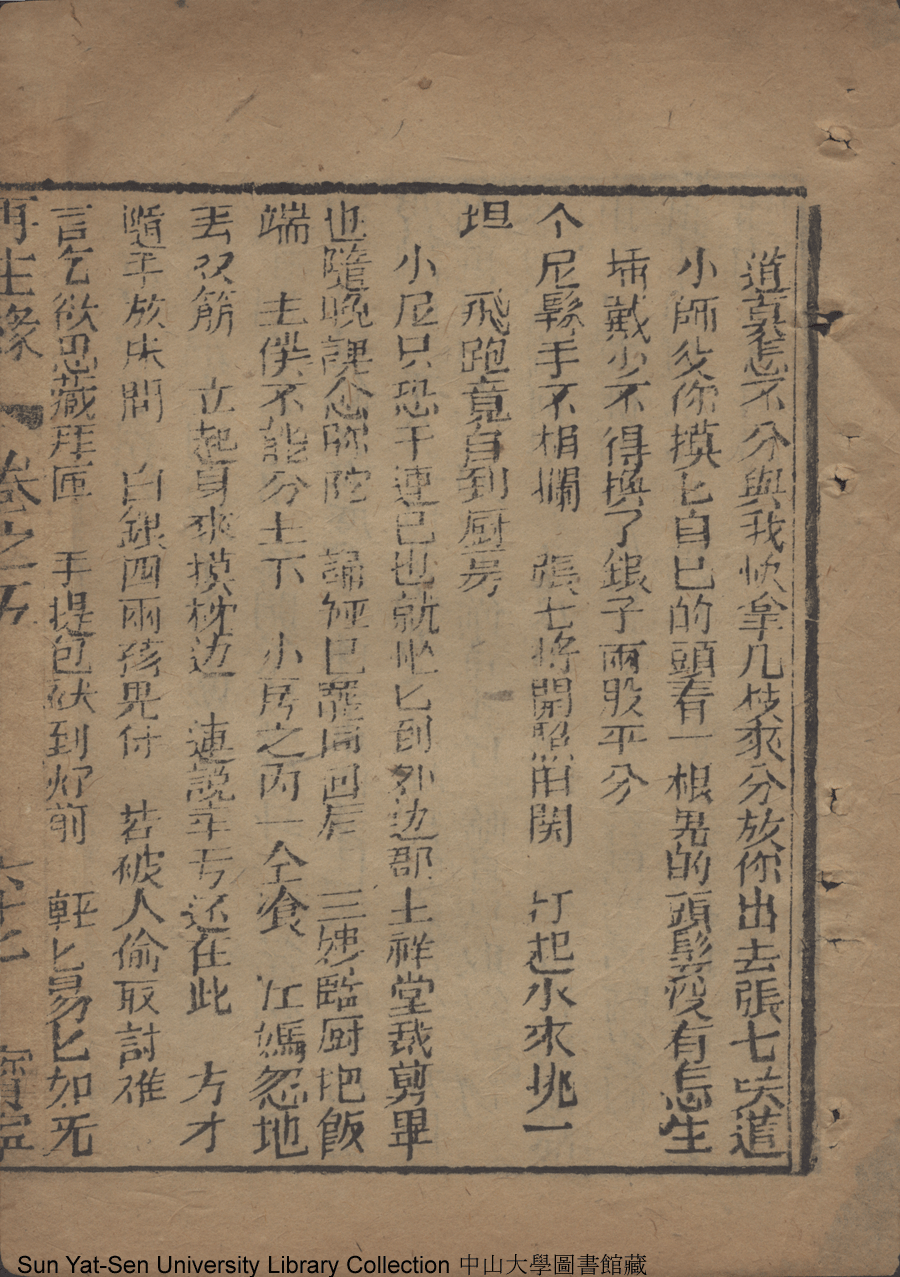 道真怎不分與我快拿几枝來分放你出去張七咲道
小師父你摸匕自己的頭看一根男的頭髮沒有怎生
揷戴少不得換了銀子兩股平分
个尼鬆手不相攔　張七將開照旧関　打起水來挑一
坦　飛跑竟自到厨房
小尼只恐干連己也就𠳐匕到外边郡土祥堂裁剪畢
也隨晚課念弥陀　誦經已罷同回后　三嫂臨厨把飯
端　主僕不能分上下　小房之内一仝飡　江媽忽地
丟双筯　立起身來摸枕边　連説幸亏还在此　方才
隨手放床間　白銀四兩孩児付　若被人偷取討难
言乞欲思藏拜匣　手提包袱到炉前　軽匕易匕如无
再生緣　卷之五　六十七　寳寧
Sun Yat-Sen University Library Collection 中山大學圖書館藏